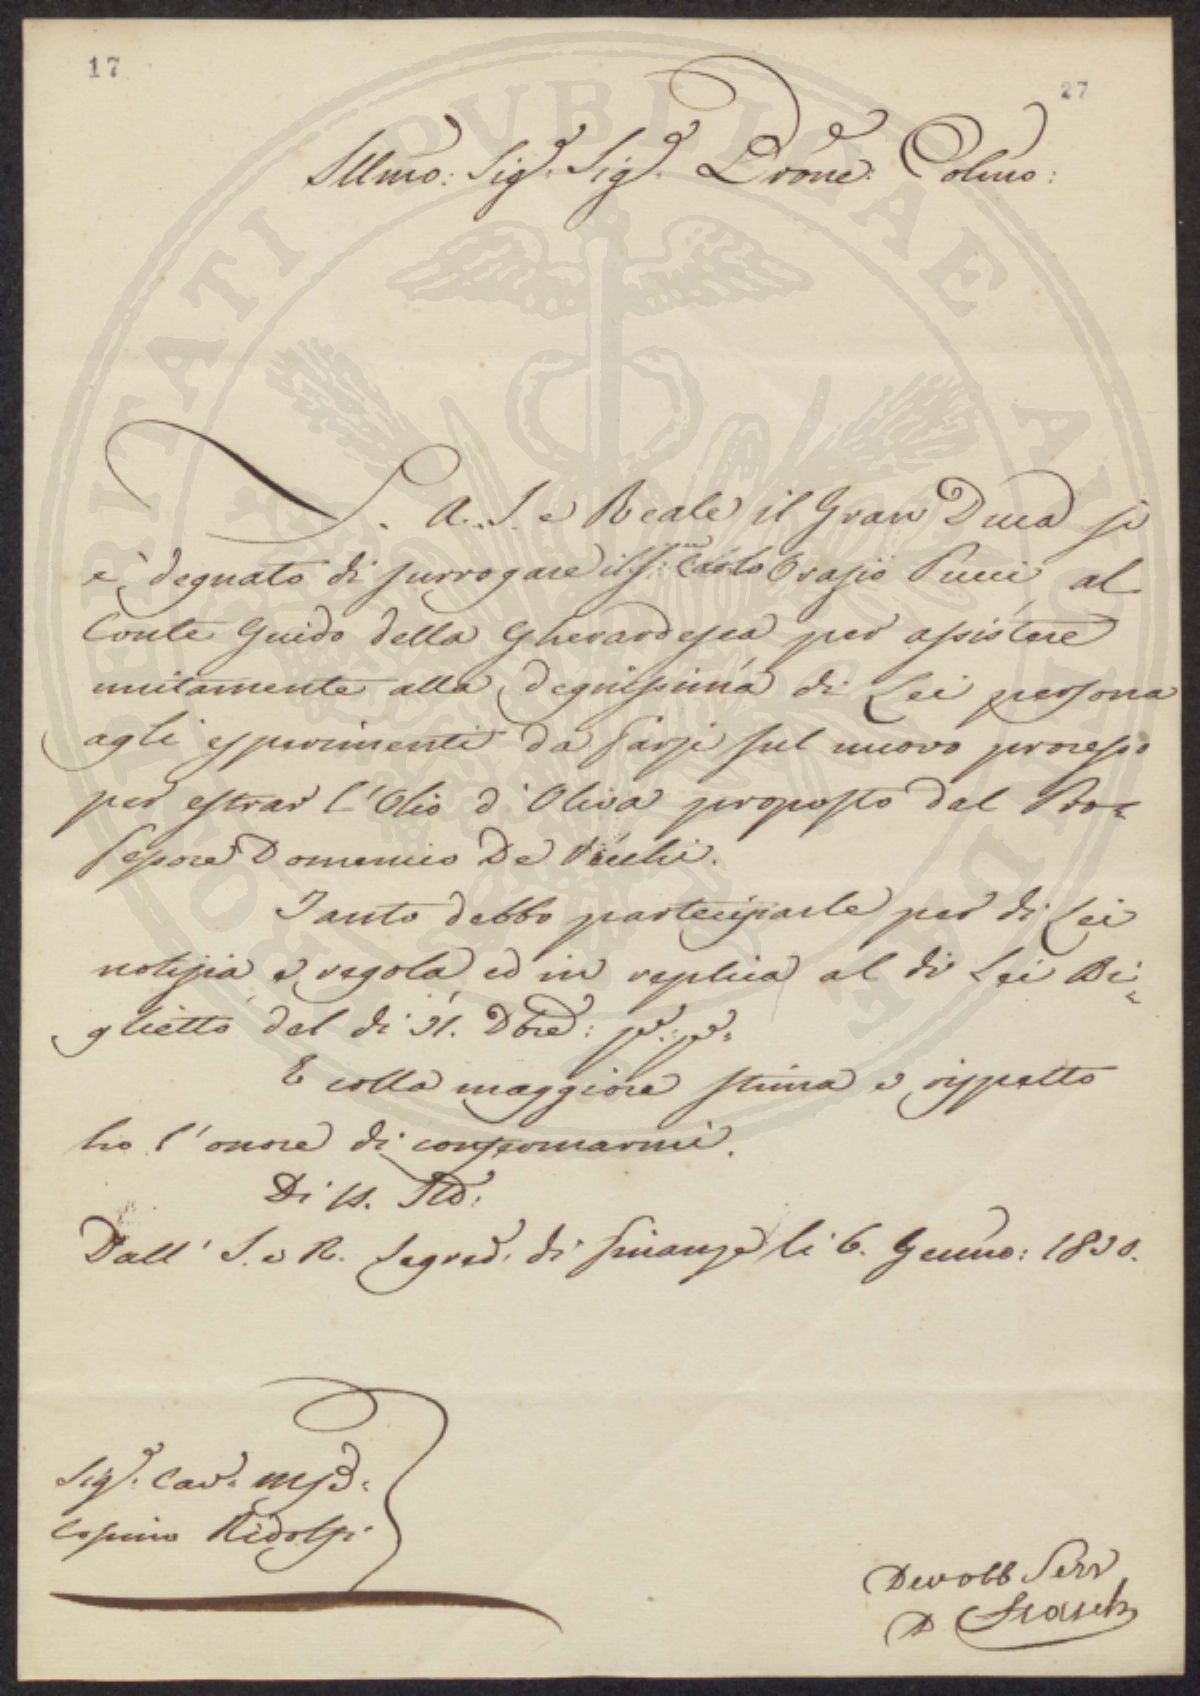 17
27
Illmo: Sigre. Sigre. Prone: Colmo:
S. A. I. e Reale il Gran Duca si
è degnato di surrogare il S: Cav. Orazio Pucci al
Conte Guido della Gherardesca per assistere
unitamente alla degnissima di Lei persona
agli esperimenti da farsi sul nuovo processo
per estrar l'Olio d'Oliva proposto dal Pro=
fessore Domenico De Vecchi.
Tanto debbo parteciparle per di Lei
notizia e regola ed in replica al di Lei Bi=
glietto del di 31. Dbre: pp:
E colla maggiore stima e rispetto
ho l'onore di confermarmi.
Di V. S. Ill:
Dall' I. e R. Segred. di Finanze li 6. Genno: 1830.
Sigr. Cav. Mse:
Cosimo Ridolfi
Dev obb Serv